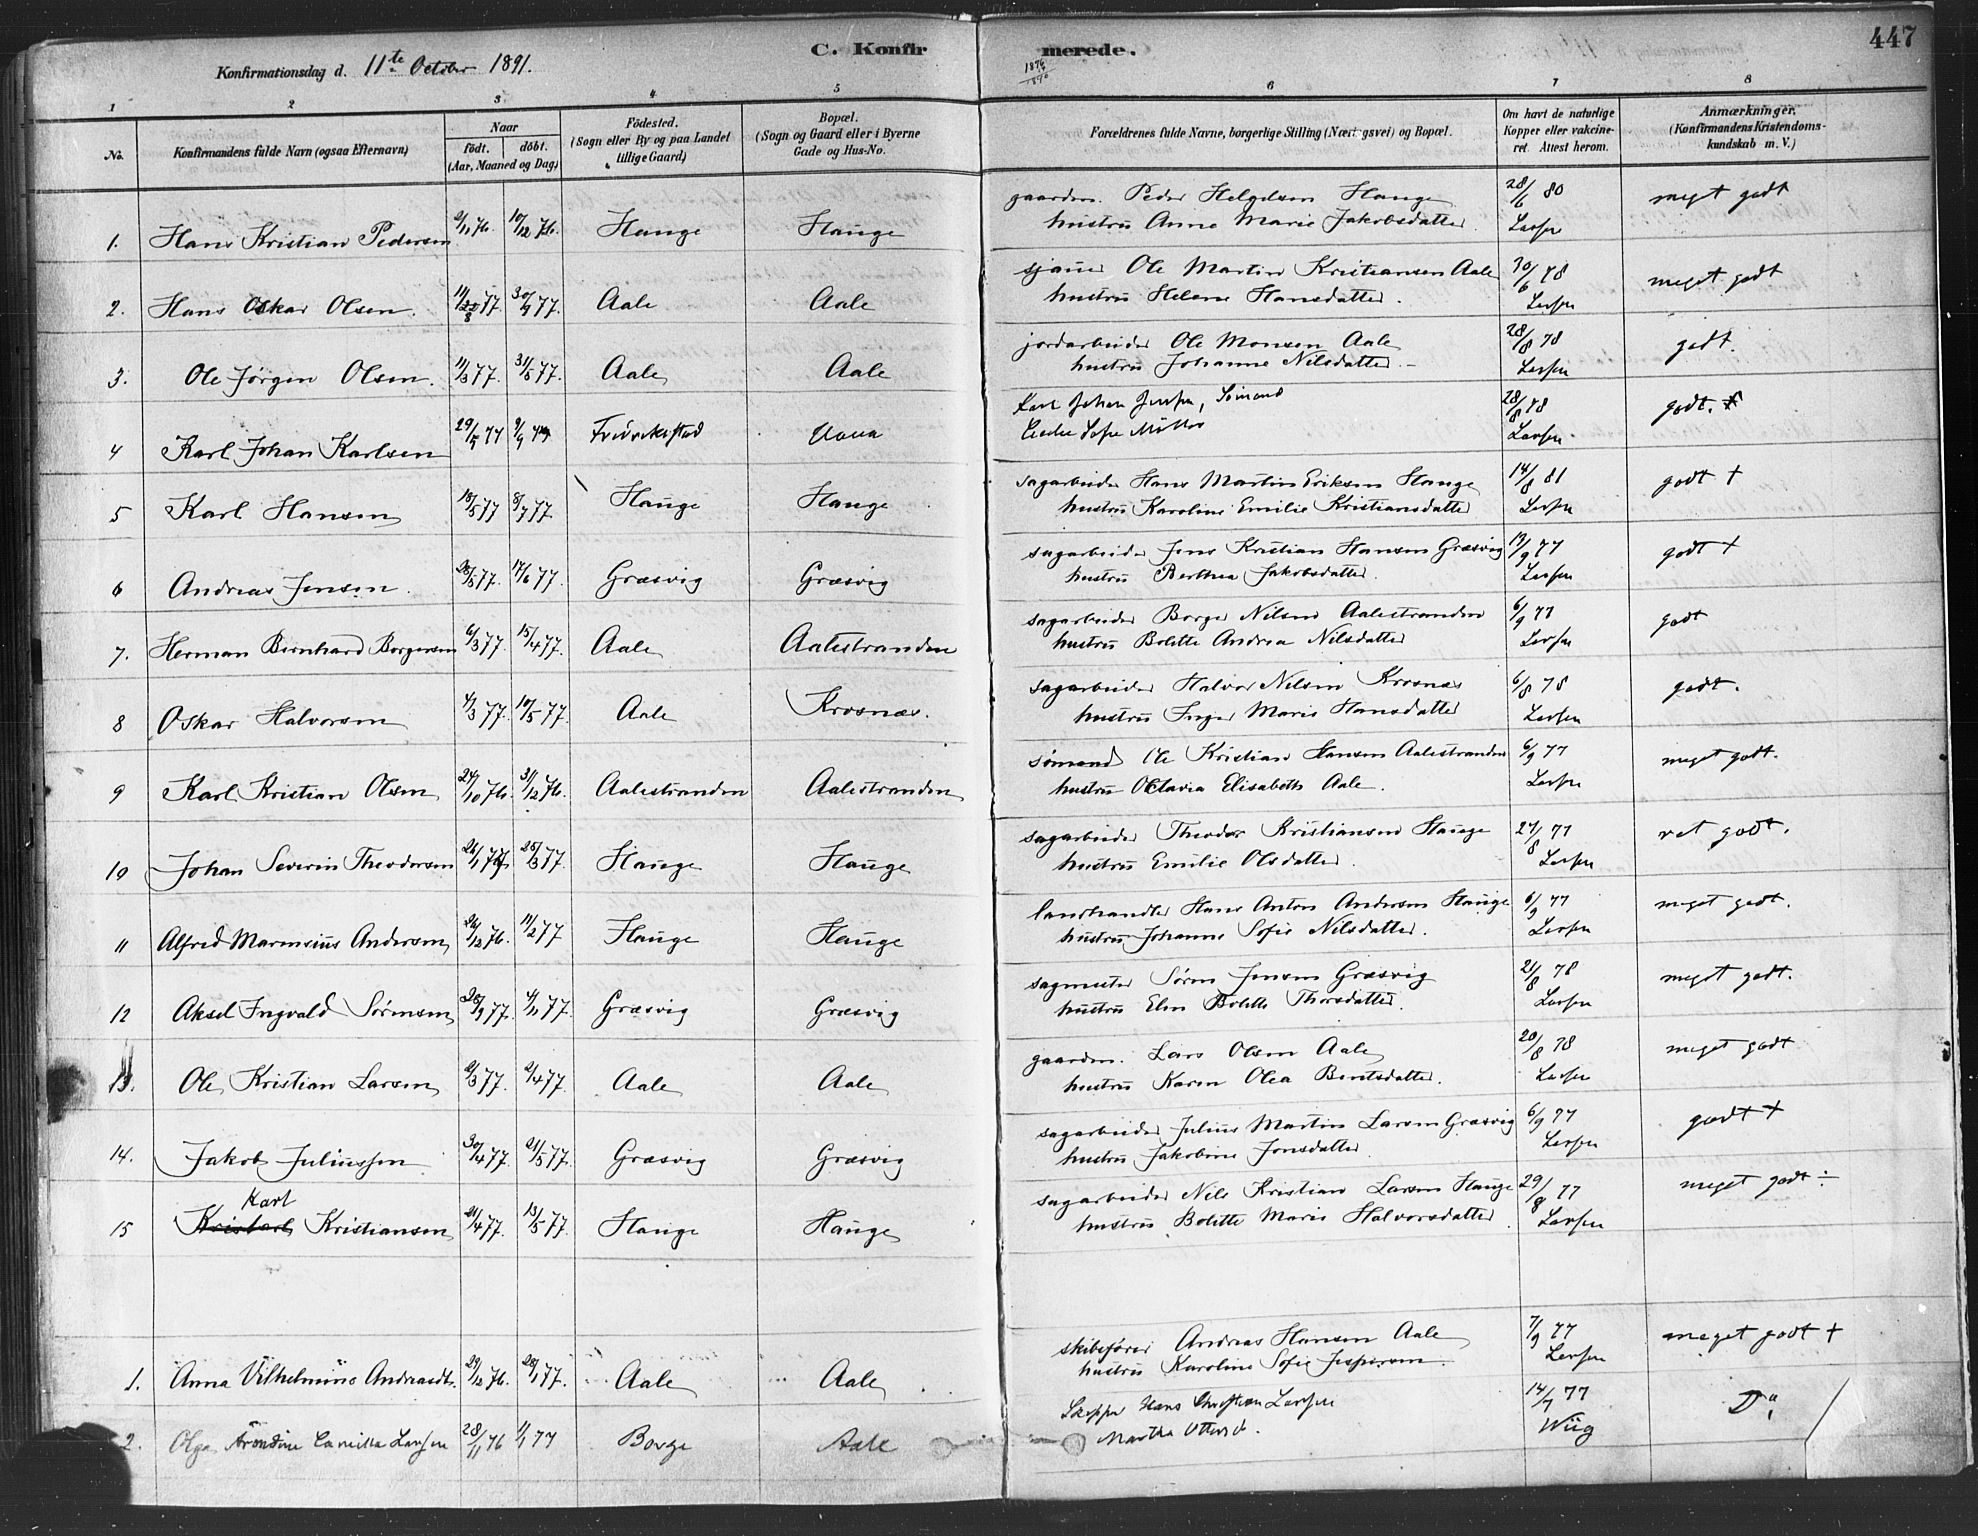 447
C. Konfirmerede.
Konfirmationsdag d. 11te October 1891.
1 2 3 4 5 6 7 8
No. Konfirmandens fulde Navn (ogsaa Efternavn) Naar födt. döbt. (Aar, Maaned og Dag) Födested. (Sogn eller By og paa Landet tillige Gaard) Bopæl. (Sogn og Gaard eller i Byerne Gade og Hus-No. Forældrenes fulde Navne, borgerlige Stilling (Næringsvei) og Bopæl. Om havt de naturlige Kopper eller vakcineret. Attest herom. Anmærkninger. (Konfirmandens Kristendomskundskab m. V.)
1. Hans Kristian Pedersen 2/11 76. 10/12 76. Hauge Hauge gaardm. Peder Helgesen Hauge 28/6 80 meget godt
hustru Anne Marie Jakobsdatter. Larsen
2. Hans Oskar Olsen. 77. 30/9 77. Aale Aale sjauer Ole Martin Kristiansen Aale 30/6 78 meget godt
hustru Helene Hansdatter. Larsen
3. Ole Jörgen Olsen. 11/3 77. 31/5 77. Aale Aale jordarbeider Ole Monsen Aale 28/8 78 godt.
hustru Johanne Nilsdatter. Larsen
4 Karl Johan Karlsen 29/5 77 9/9 77 Fredrikstad Karl Johan Jensen, Sömand 28/8 78 godt.
Sofie Larsen.
5 Karl Hansen 13/5 77 8/7 77. Hauge Hauge sagarbeider Hans Martin Eriksen Hauge 14/8 81 godt +
hustru Karoline Emilie Kristiansdatter Larsen
6 Andreas Jensen. 28/5 77. 17/6 77. Græsvig Græsvig sagarbeider Jens Kristian Hansen Græsvig 19/9 77 godt +
hustru Berthea Jakobsdatter. Larsen
7. Herman Bernhard Borgersen 6/3 77. 15/4 77. Aale Aalestranden sagarbeider Borge Nilsen Aalestranden 6/9 77 godt
hustru Bolette Andrea Nilsdatter Larsen
8 Oskar Halvorsen 4/3 77. 10/5 77. Aale Krosnæs. sagarbeider Halvor Nilsen Krosnæs 6/8 78 godt.
hustru Inger Marie Hansdatter Larsen
9 Karl Kristian Olsen 24/10 76. 31/12 76. Aalestranden Aalestranden sömand Ole Kristian Hansen Aalestranden 6/9 77 meget godt.
hustru Oktavia Elisabeth Aale. Larsen
10 Johan Severin Theodorsen 77. 25/3 77. Hauge Hauge sagarbeider Theodor Kristiansen Hauge 27/8 77 ret godt.
hustru Emilie Olsdatter. Larsen
11 Alfred Andersen 26/12 76. 11/2 77 Hauge Hauge landhandler Hans Anton Andersen Hauge 6/9 77 meget godt.
hustru Johanne Sofie Nilsdatter. Larsen
12 Aksel Ingvald Sörensen 77. 4/11 77. Græsvig Græsvig sagmester Sören Jensen Græsvig 21/8 78 meget godt.
hustru Elen Bolette Thorsdatter. Larsen
13. Ole Kristian Larsen 2/3 77. 2/4 77. Aale Aale gaardm. Lars Olsen Aale 20/8 78 meget godt
hustru Karen Olea Berntsdatter. Larsen
14. Jakob Juliussen 30/4 77. 21/5 77. Græsvig Græsvig sagarbeider Julius Martin Larsen Græsvig 6/9 77 godt +
hustru Jakobine Jonsdatter. Larsen
Karl
15 Kristiansen 21/4 77. 13/5 77. Hauge Hauge sagarbeider Nils Kristian Larsen Hauge 29/8 77 meget godt ÷
hustru Bolette Marie Halvorsdatter Larsen
1. Anna Vilhelmine Andreasdt. 29/12 76. 28/1 77. Aale Aale skibsförer Andreas Hansen Aale 7/9 77 meget godt +
hustru Karoline Sofie Jespersen. Larsen
2. Olga Arondine Camilla Larsen 28/11 76 1/1 77 Borge Aale Skipper Hans Christian Larsen 14/7 77 Do
Martha Ottersd. Wiig